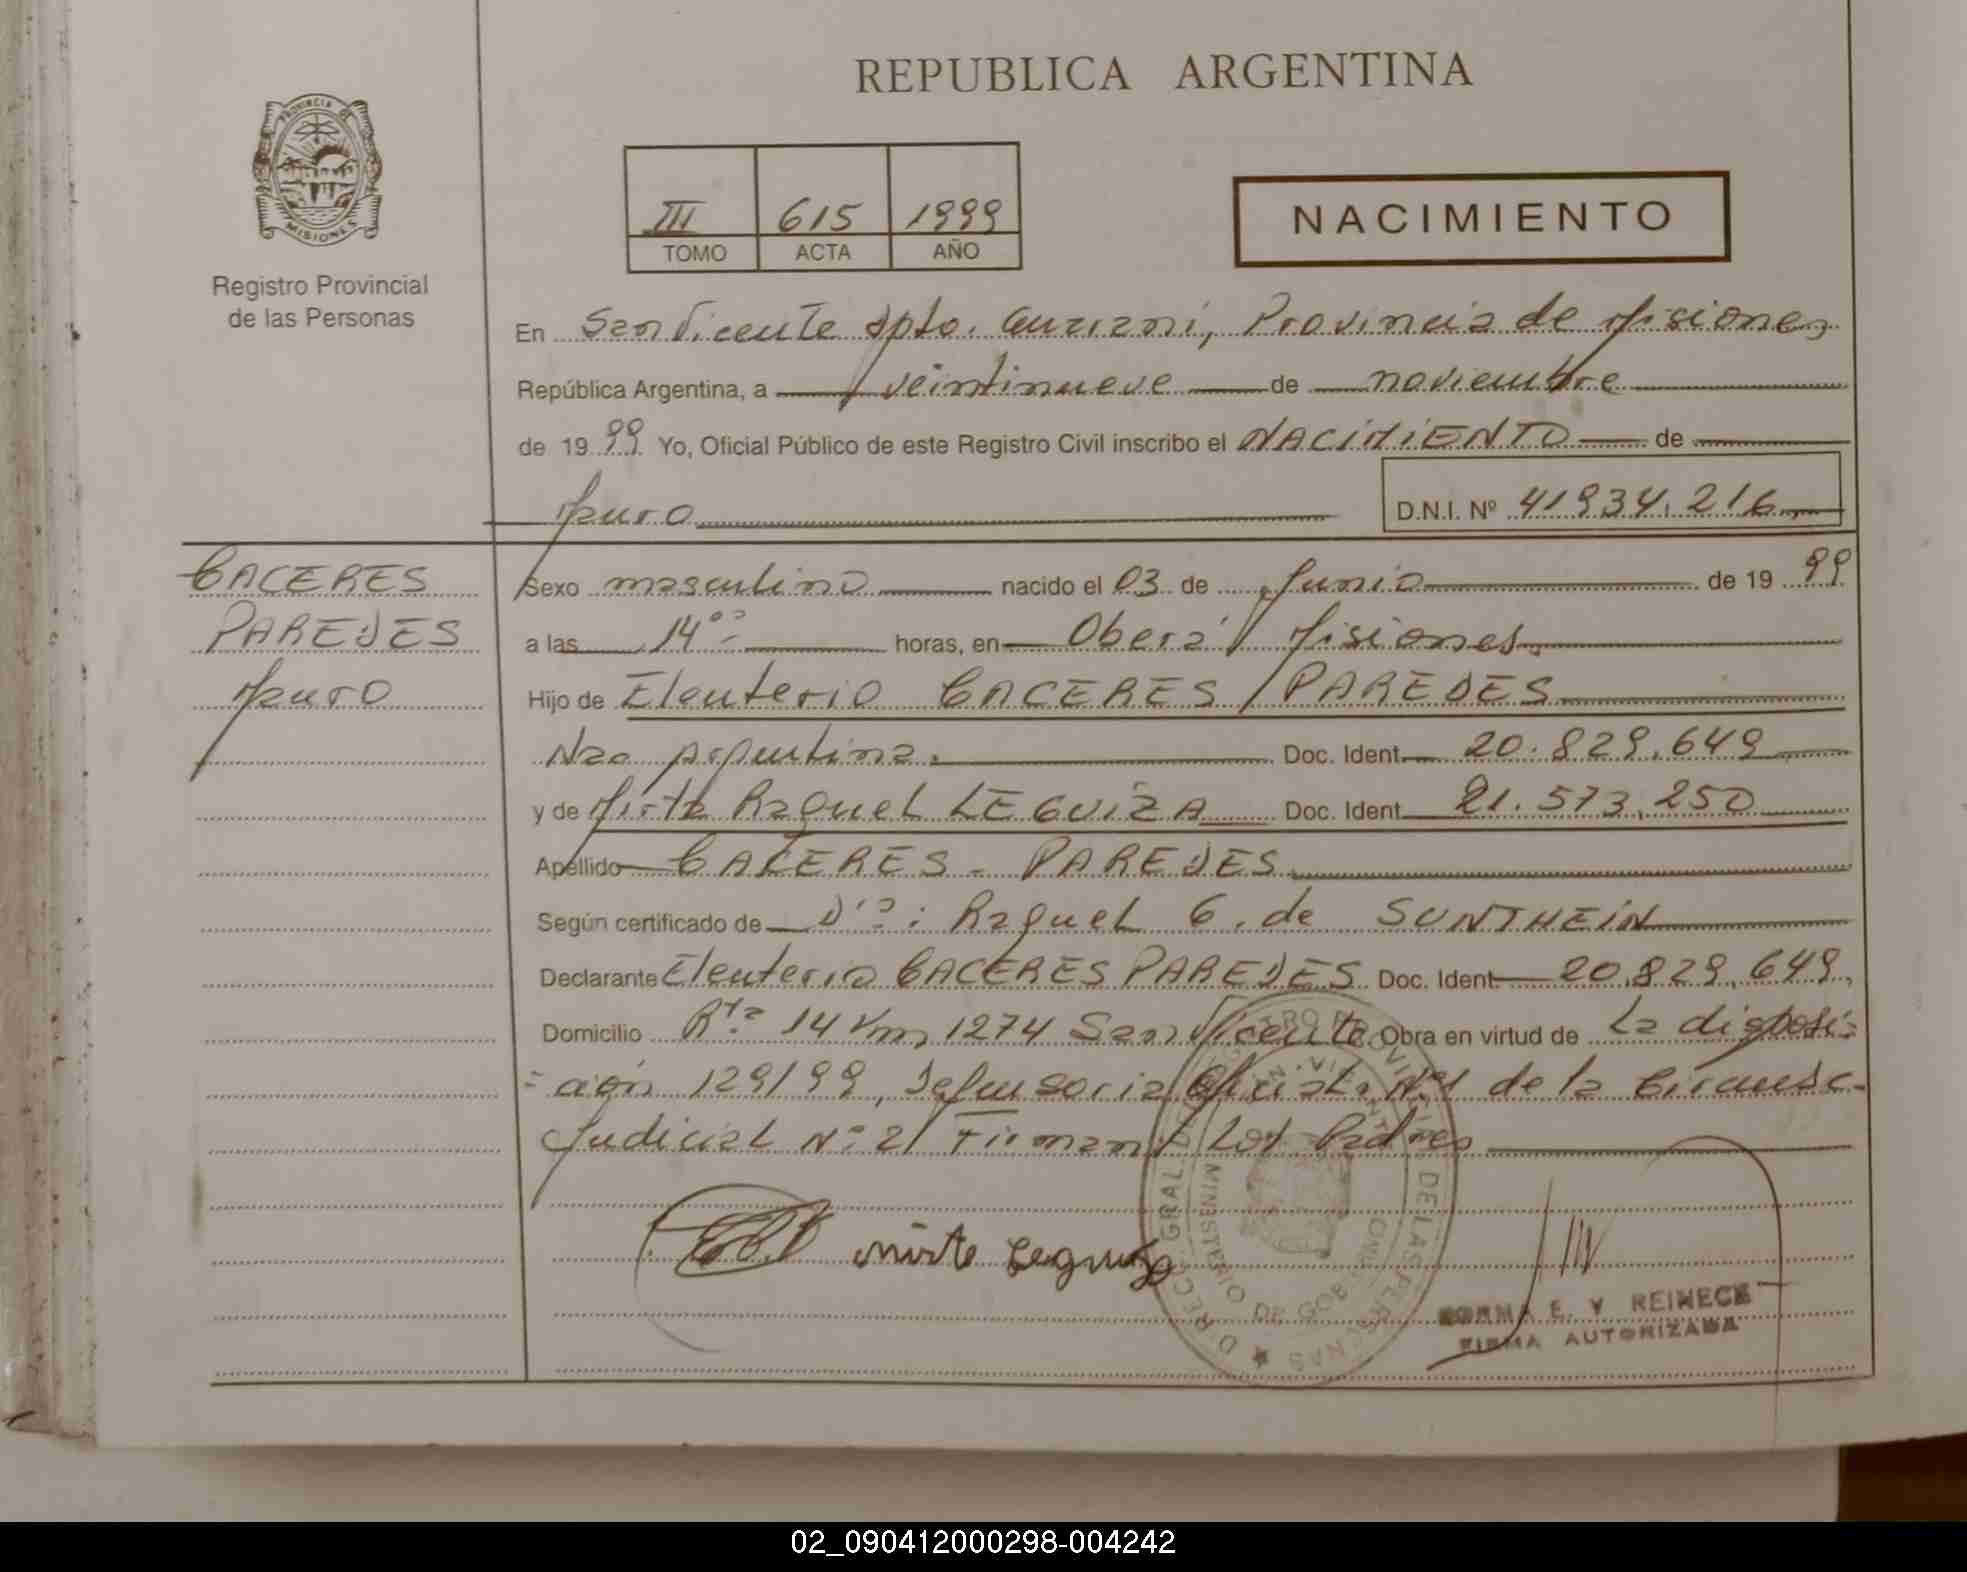 REPUBLICA ARGENTINA
PROVINCIA DE
MISIONES
Registro Provincial
de las Personas
III 615 1999
TOMO ACTA AÑO
NACIMIENTO
En San Vicente Dpto. Guaraní, Provincia de Misiones
República Argentina, a veintinueve de noviembre
de 1999 Yo, Oficial Público de este Registro Civil inscribo el NACIMIENTO de
Mauro
D.N.I. Nº 41934.216
CACERES
PAREDES
Mauro
Sexo masculino nacido el 03 de Junio de 1999
a las 14 horas, en Oberá Misiones
Hijo de Eleuterio CACERES PAREDES
Nac Argentina. Doc. Ident 20.829.649
y de Mirta Raquel LEGUIZA Doc. Ident 21.573.250
Apellido CACERES - PAREDES
Según certificado de Dra: Raquel G. de SUNTHEIN
Declarante Eleuterio CACERES PAREDES Doc. Ident 20.829.649
Domicilio Rta 14 Km 1274 San Vicente Obra en virtud de La disposi=
=ción 129/99, Defensoria Oficial Nº1 de la Circunsc.
Judicial Nº 2/ Firman: Los Padres
mirta Leguiza
DIRECC. GRAL. DEL REGISTRO PROVINCIAL DE LAS PERSONAS
MINISTERIO DE GOB
SAN VICENTE
MISIONES
NORMA E. V REINECK
FIRMA AUTORIZADA
02_090412000298-004242